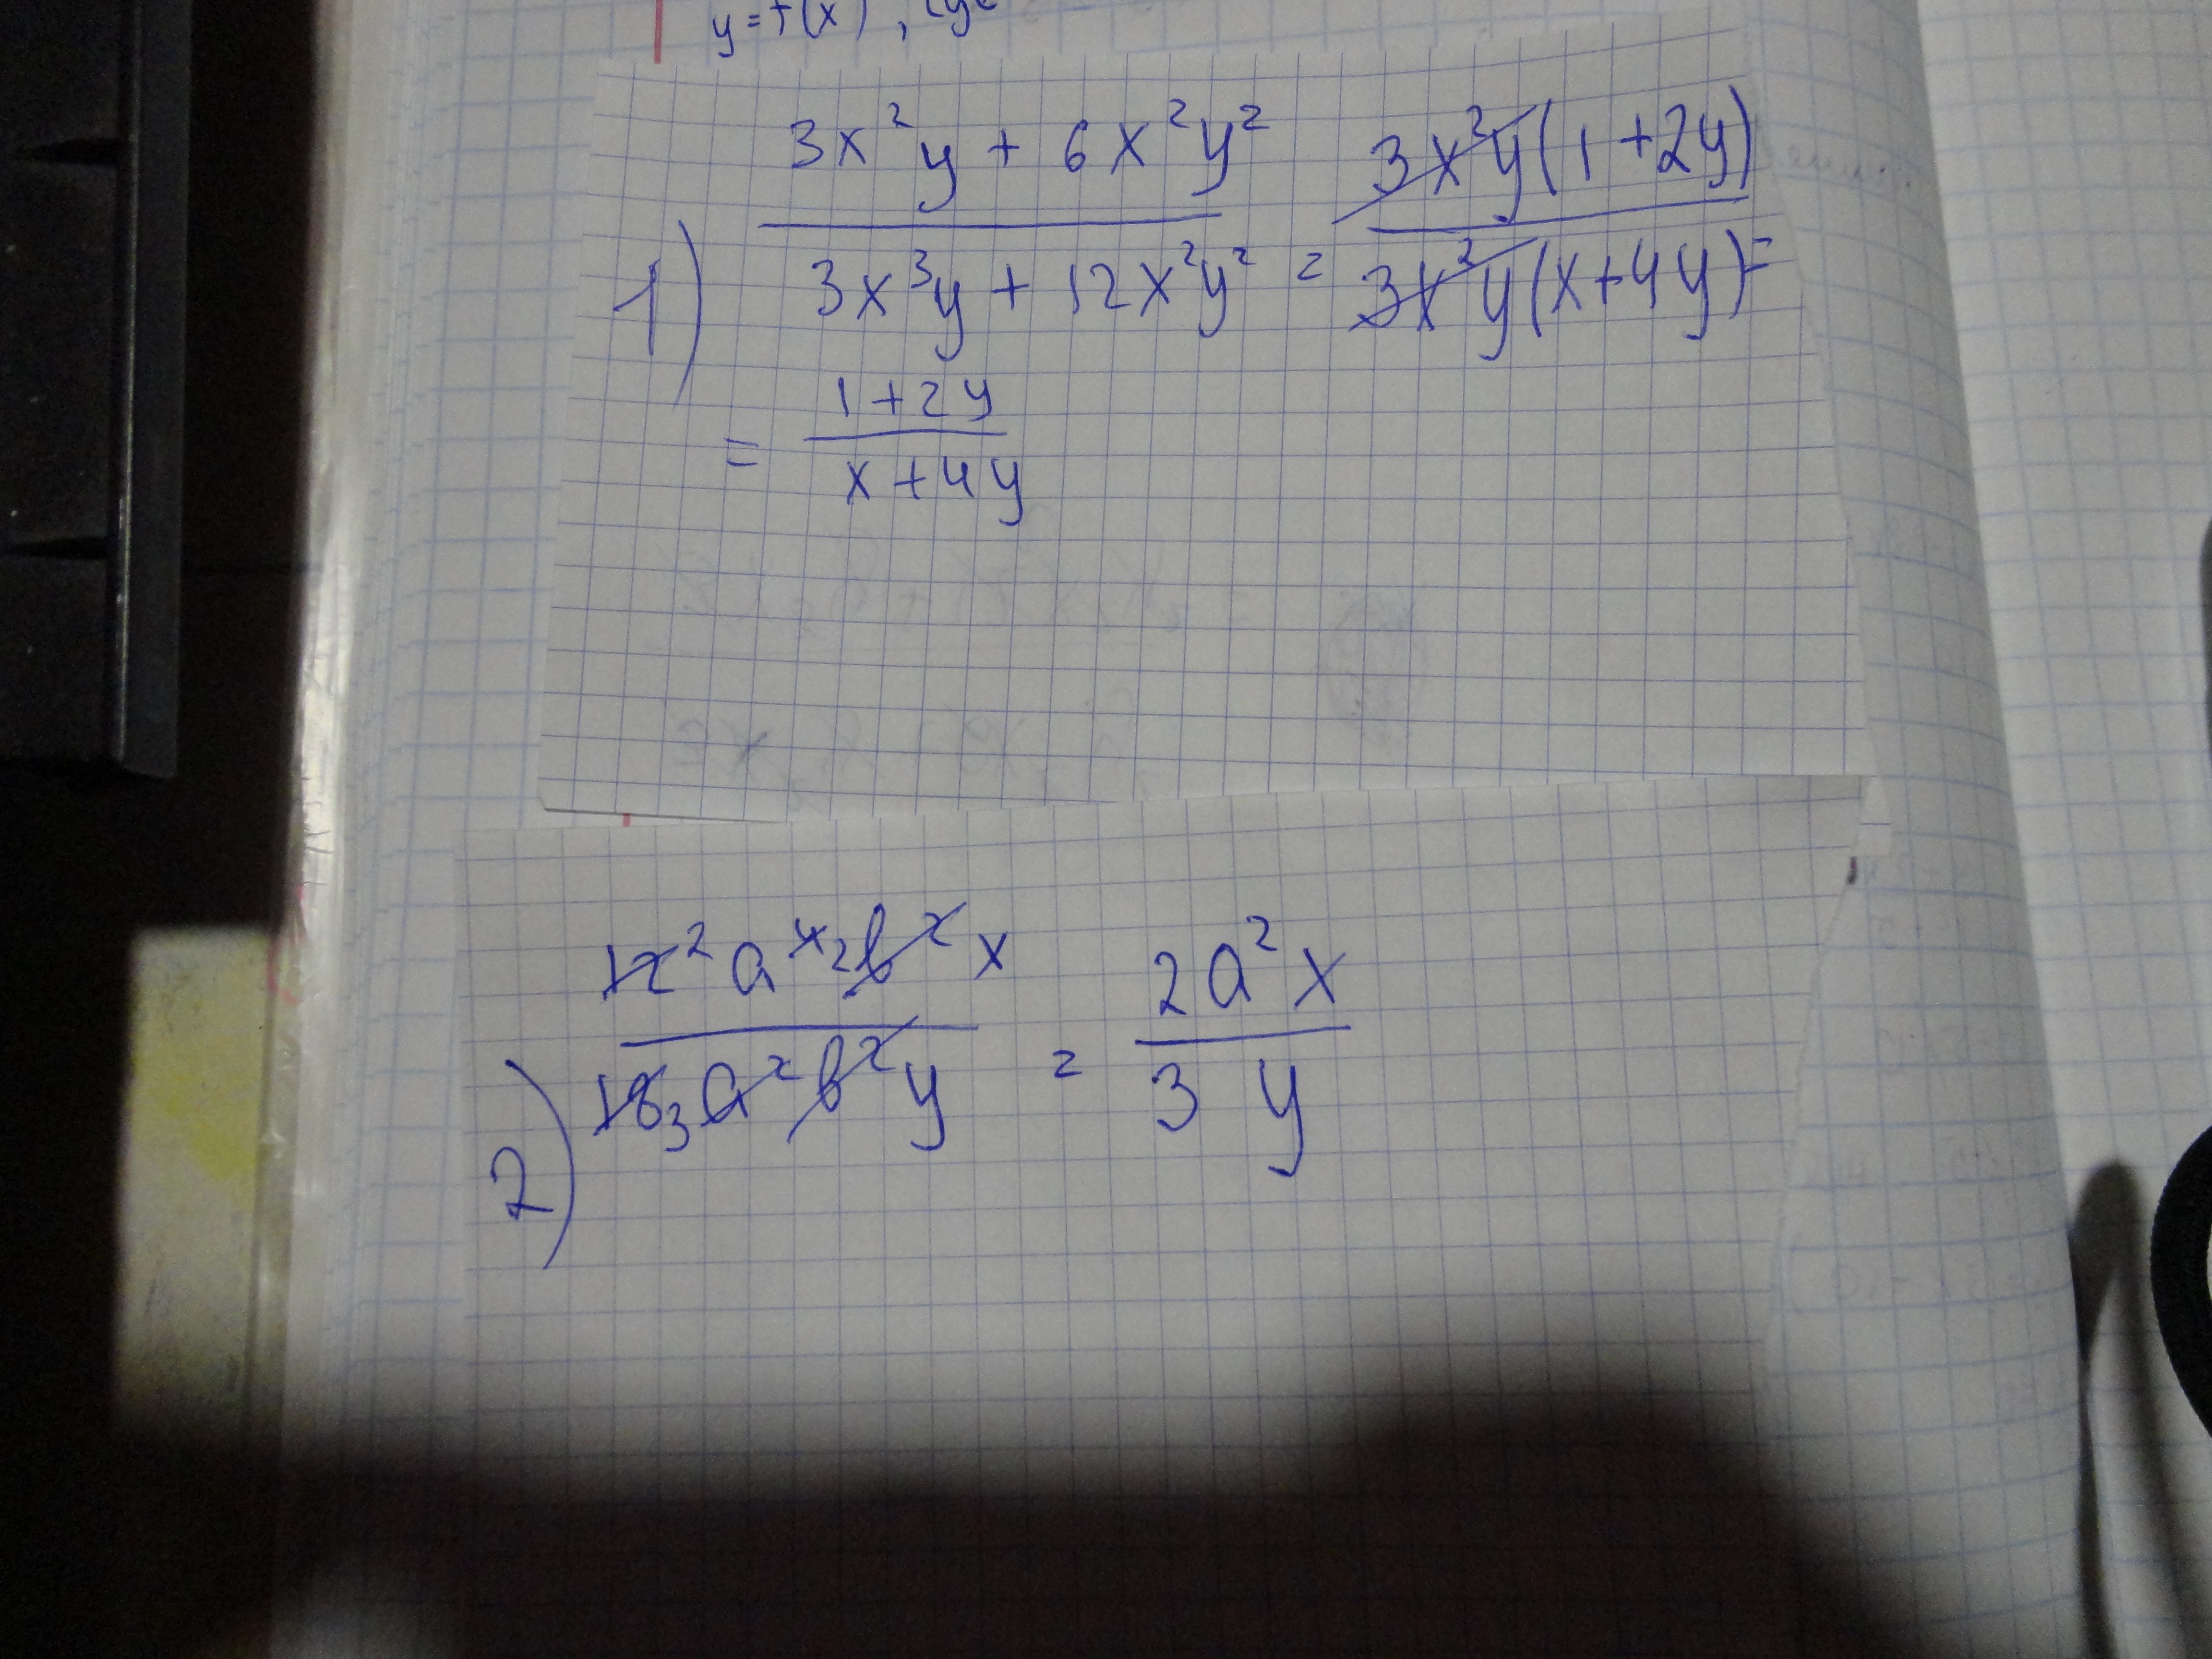 y = f(x),
1) \frac{3x^2y + 6x^2y^2}{3x^3y + 12x^2y^2} = \frac{3x^2y(1+2y)}{3x^2y(x+4y)} =
= \frac{1+2y}{x+4y}
2) \frac{12^2 a^{4 2} b^2 x}{18_3 a^2 b^2 y} = \frac{2a^2x}{3y}